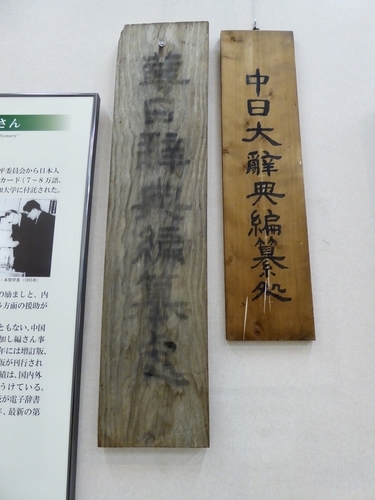 さん
平委員会から日本人
カード(7〜8万語、
大学に付託された。
の励ましと、内
方面の援助が
ともない、中国
加し編さん事
年には増訂版、
版が刊行され
績は、国内外
うけている。
版が電子辞書
、最新の第
華日辭典編纂處
中日大辭典編纂処